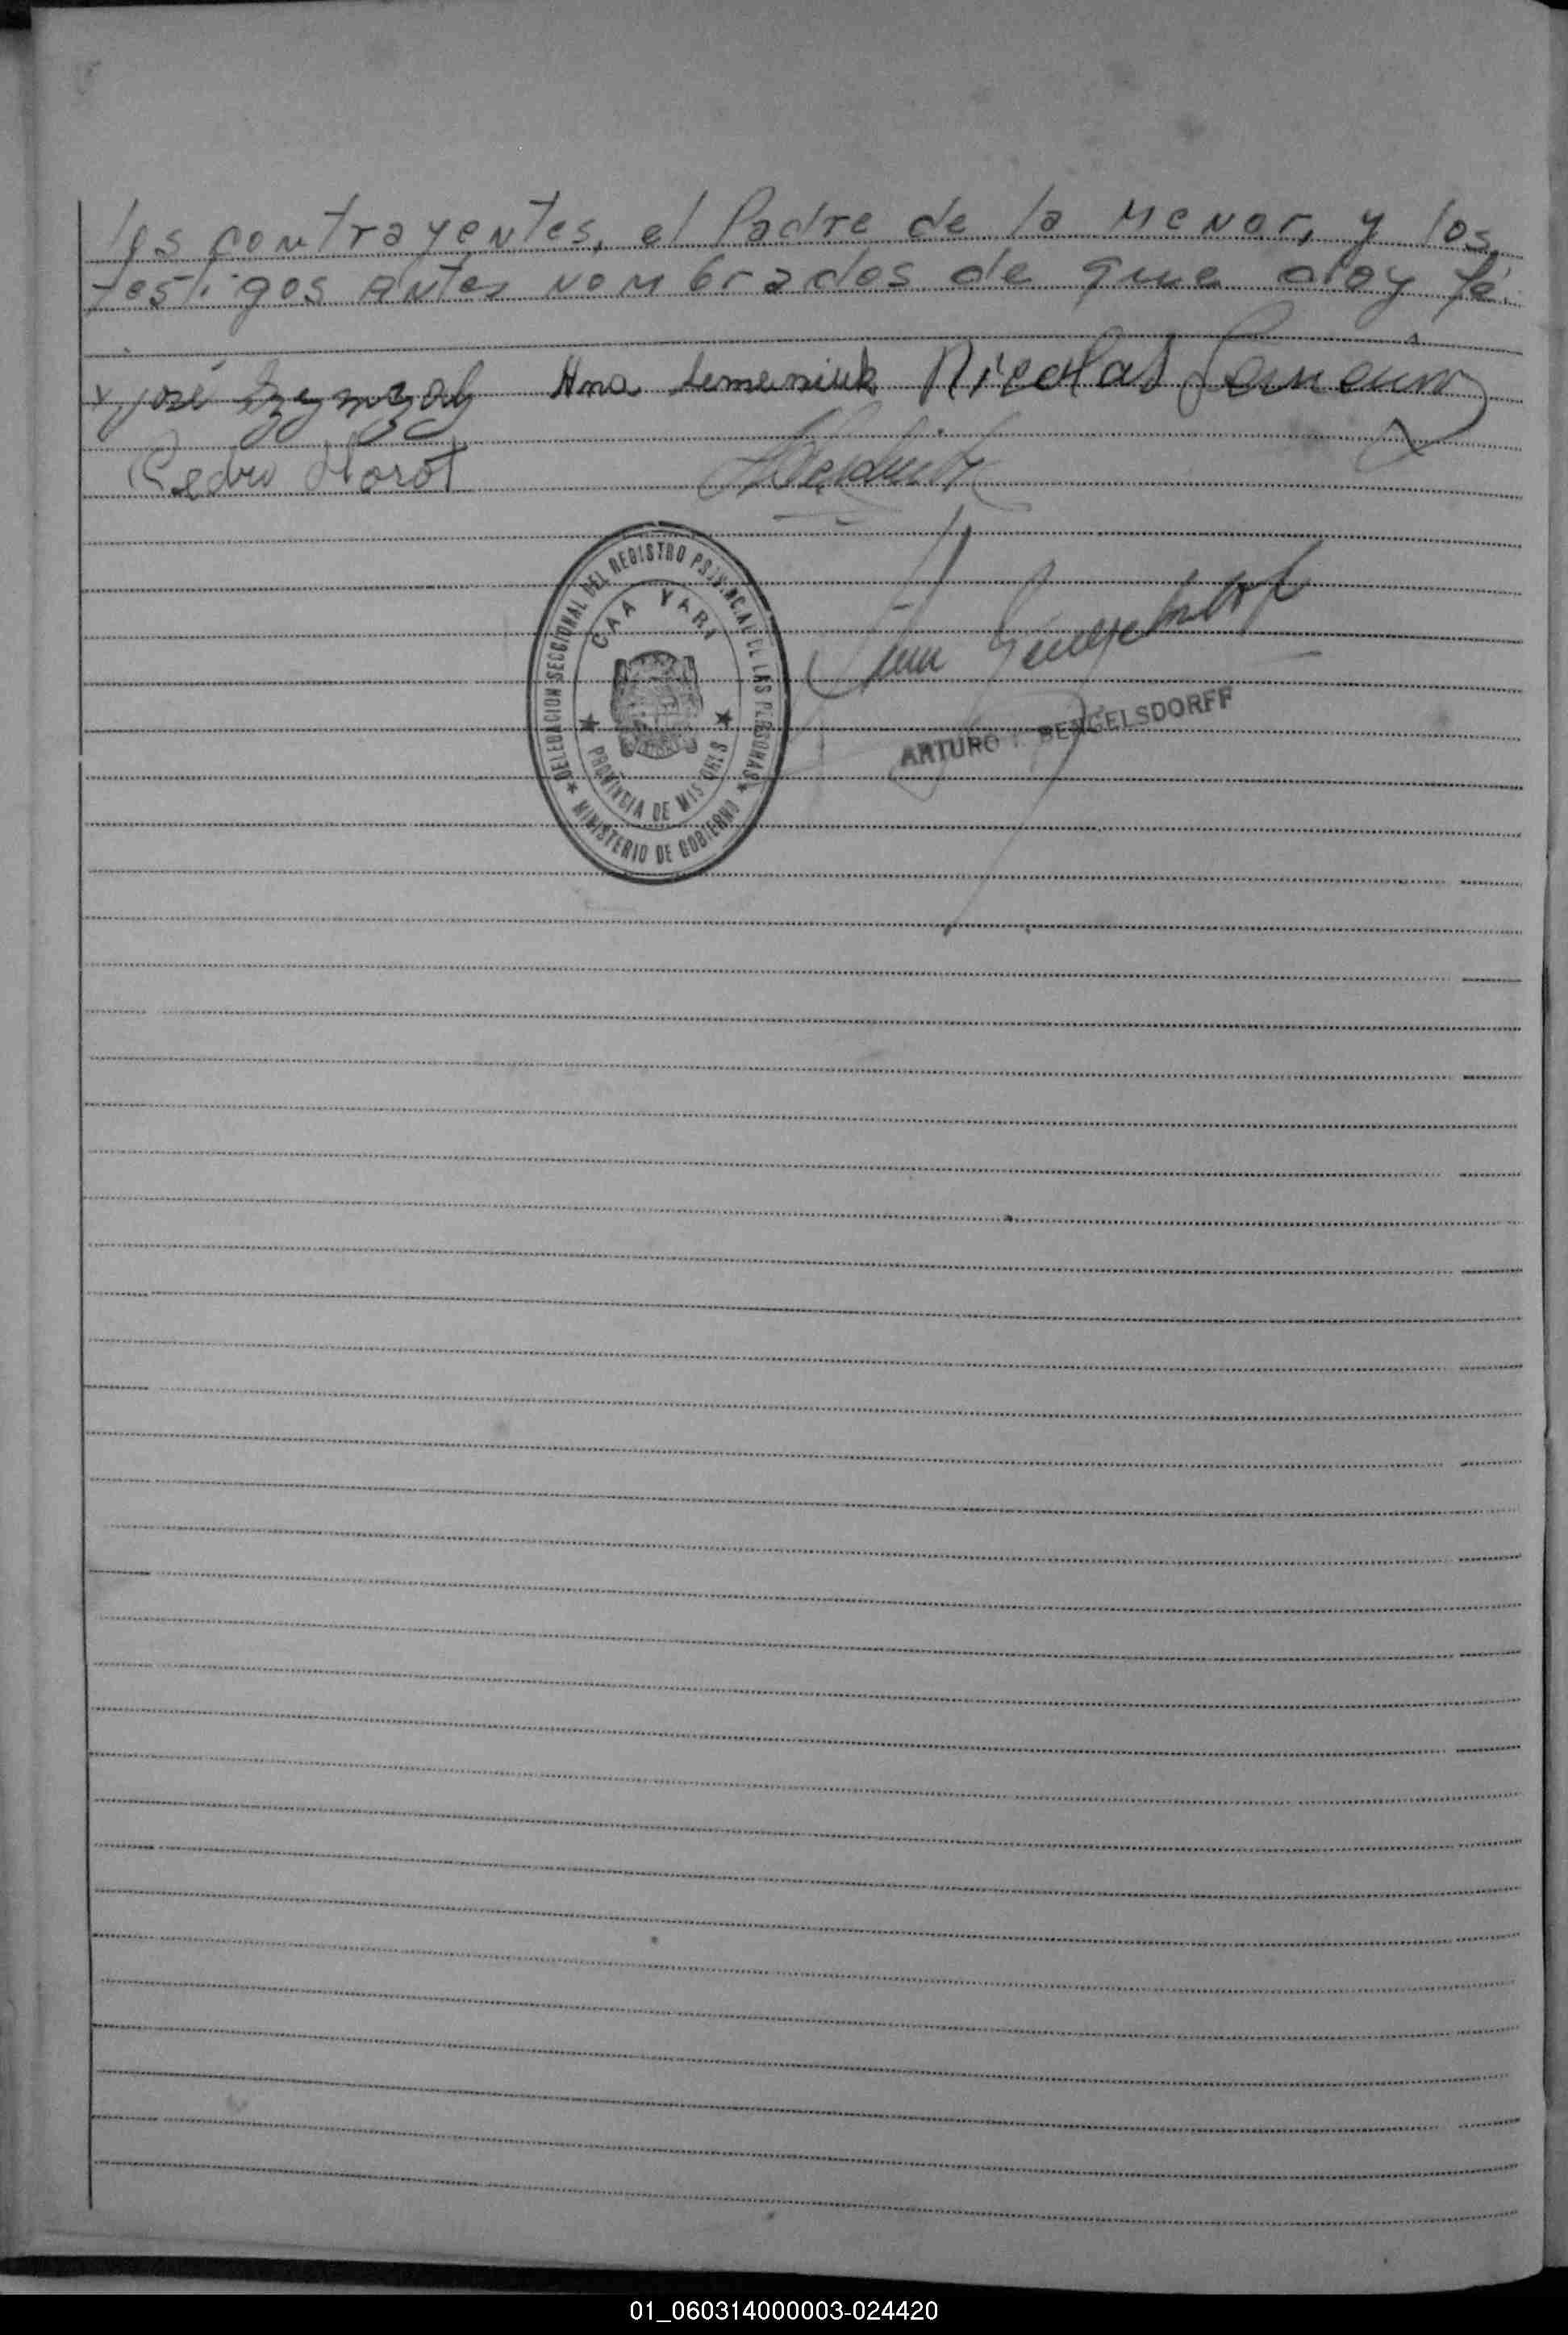 los contrayentes, el Padre de la Menor, y los
testigos antes nombrados de que doy fé.
José Ana Semeniuk Nicolas
Pedro
DELEGACION SECCIONAL DEL REGISTRO PROVINCIAL DE LAS PERSONAS
CAA YARI
PROVINCIA DE MISIONES
MINISTERIO DE GOBIERNO
ARTURO BENGELSDORFF
01_060314000003-024420